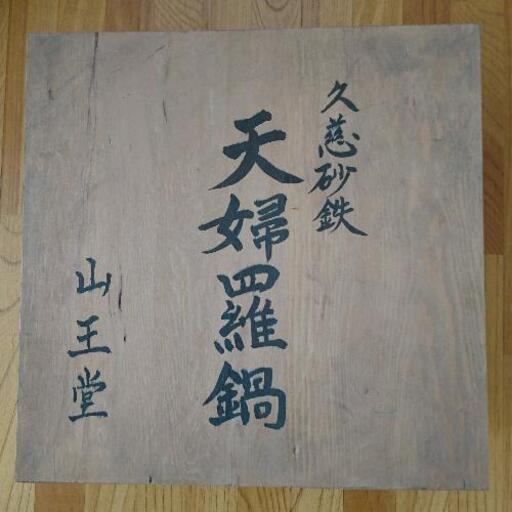 久慈砂鉄
天婦羅鍋
山王堂